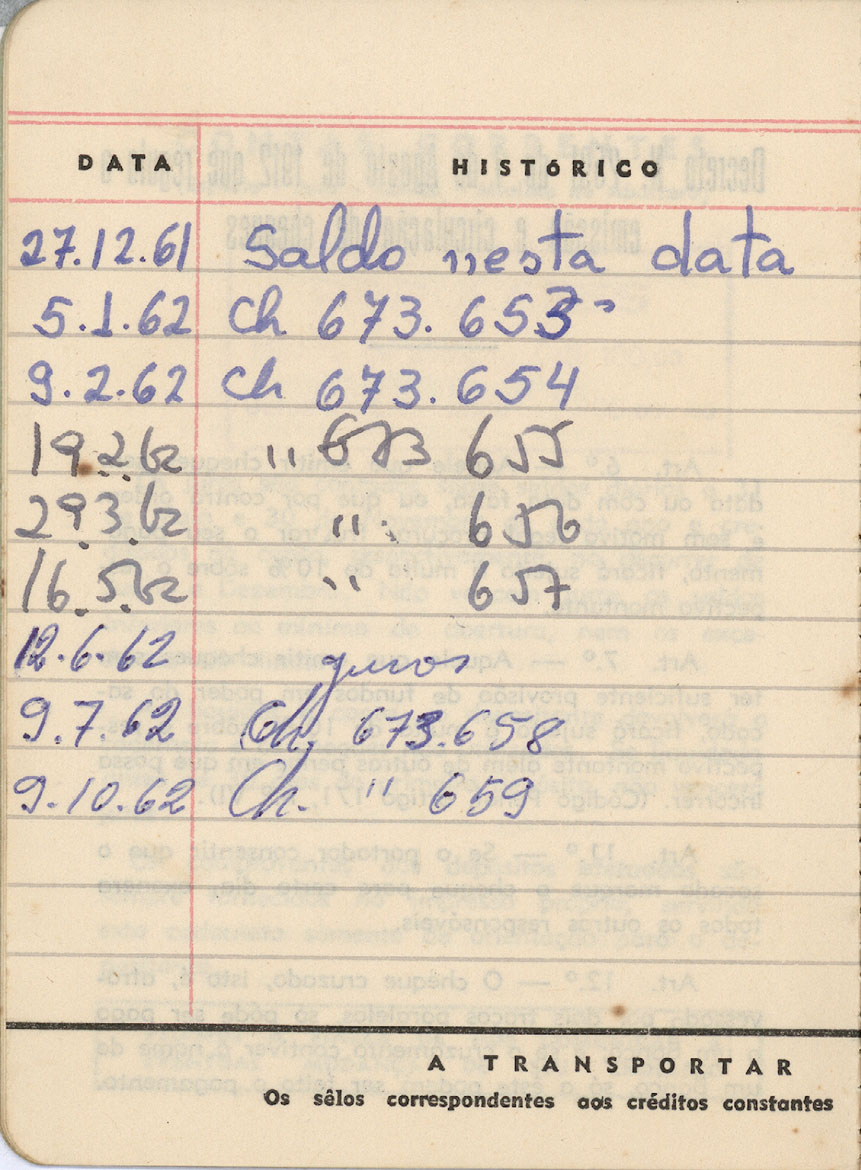 DATA HISTÓRICO
27.12.61 Saldo nesta data
5.1.62 Ch 673.653
9.2.62 Ch 673.654
19.2.62 " 673 655
29.3.62 " 656
16.5.62 " 657
12.6.62 juros
9.7.62 Ch. 673.658
9.10.62 Ch. " 659
A TRANSPORTAR
Os sêlos correspondentes aos créditos constantes